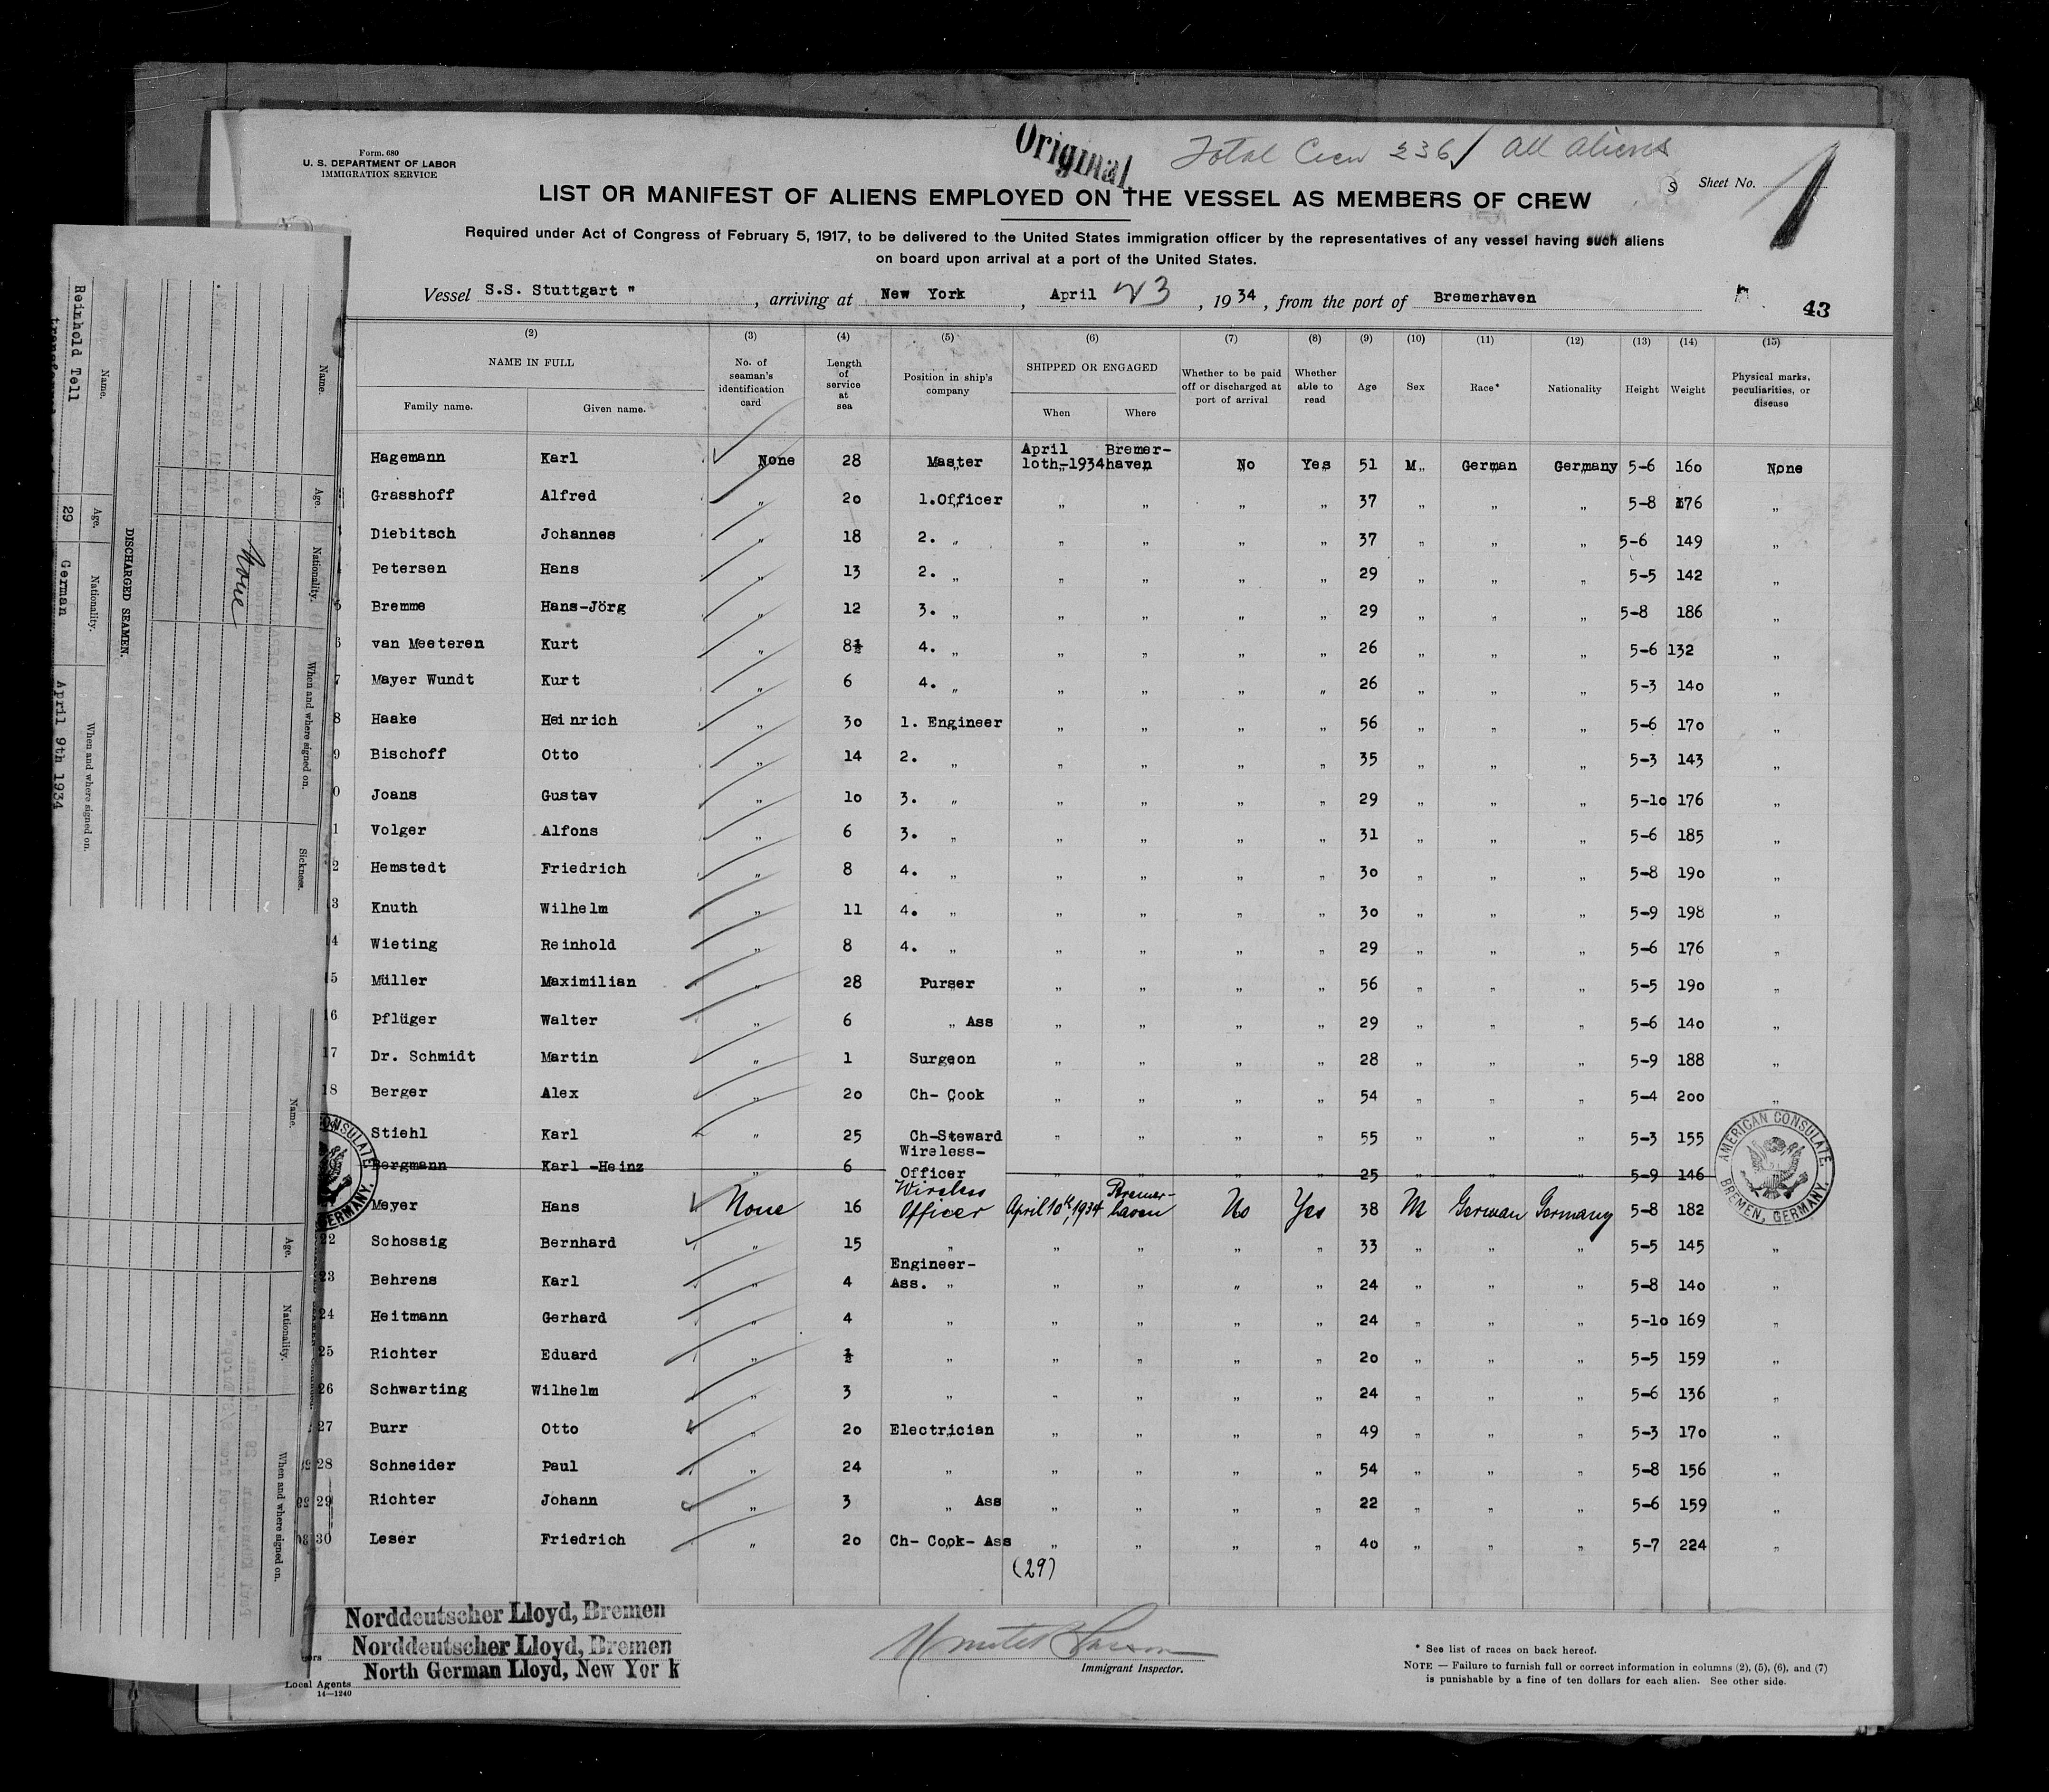 Form. 680
U. S. DEPARTMENT OF LABOR
IMMIGRATION SERVICE
Original
Total Crew 236 / All aliens
Sheet No. 1
LIST OR MANIFEST OF ALIENS EMPLOYED ON THE VESSEL AS MEMBERS OF CREW
Required under Act of Congress of February 5, 1917, to be delivered to the United States immigration officer by the representatives of any vessel having such aliens
on board upon arrival at a port of the United States.
Vessel S.S. Stuttgart " , arriving at New York , April 23 , 1934 , from the port of Bremerhaven
43
(2) (3) (4) (5) (6) (7) (8) (9) (10) (11) (12) (13) (14) (15)
NAME IN FULL No. of seaman's identification card Length of service at sea Position in ship's company SHIPPED OR ENGAGED Whether to be paid off or discharged at port of arrival Whether able to read Age Sex Race* Nationality Height Weight Physical marks, peculiarities, or disease
Family name. Given name. When Where
Hagemann Karl None 28 Master April 10th-1934 Bremerhaven No Yes 51 M German Germany 5-6 160 None
Grasshoff Alfred „ 20 1.Officer „ „ „ „ 37 „ „ „ 5-8 176 „
Diebitsch Johannes „ 18 2. „ „ „ „ „ 37 „ „ „ 5-6 149 „
Petersen Hans „ 13 2. „ „ „ „ „ 29 „ „ „ 5-5 142 „
5 Bremme Hans-Jörg „ 12 3. „ „ „ „ „ 29 „ „ „ 5-8 186 „
6 van Meeteren Kurt „ 8½ 4. „ „ „ „ „ 26 „ „ „ 5-6 132 „
7 Mayer Wundt Kurt „ 6 4. „ „ „ „ „ 26 „ „ „ 5-3 140 „
8 Haake Heinrich „ 30 1. Engineer „ „ „ „ 56 „ „ „ 5-6 170 „
9 Bischoff Otto „ 14 2. „ „ „ „ „ 35 „ „ „ 5-3 143 „
0 Joans Gustav „ 10 3. „ „ „ „ „ 29 „ „ „ 5-10 176 „
1 Volger Alfons „ 6 3. „ „ „ „ „ 31 „ „ „ 5-6 185 „
2 Hemstedt Friedrich „ 8 4. „ „ „ „ „ 30 „ „ „ 5-8 190 „
3 Knuth Wilhelm „ 11 4. „ „ „ „ „ 30 „ „ „ 5-9 198 „
4 Wieting Reinhold „ 8 4. „ „ „ „ „ 29 „ „ „ 5-6 176 „
5 Müller Maximilian „ 28 Purser „ „ „ „ 56 „ „ „ 5-5 190 „
16 Pflüger Walter „ 6 „ Ass „ „ „ „ 29 „ „ „ 5-6 140 „
17 Dr. Schmidt Martin „ 1 Surgeon „ „ „ „ 28 „ „ „ 5-9 188 „
18 Berger Alex „ 20 Ch- Cook „ „ „ „ 54 „ „ „ 5-4 200 „
Stiehl Karl „ 25 Ch-Steward „ „ „ „ 55 „ „ „ 5-3 155
Bergmann Karl -Heinz „ 6 Wireless-Officer „ „ „ „ 25 „ „ „ 5-9 146
Meyer Hans None 16 Wireless Officer April 10th, 1934 Bremerhaven No Yes 38 M German Germany 5-8 182
22 Schossig Bernhard „ 15 „ „ „ „ „ 33 „ „ „ 5-5 145 „
23 Behrens Karl „ 4 Engineer-Ass. „ „ „ „ „ 24 „ „ „ 5-8 140 „
24 Heitmann Gerhard „ 4 „ „ „ „ „ 24 „ „ „ 5-10 169 „
25 Richter Eduard „ ½ „ „ „ „ „ 20 „ „ „ 5-5 159 „
26 Schwarting Wilhelm „ 3 „ „ „ „ „ 24 „ „ „ 5-6 136 „
27 Burr Otto „ 20 Electrician „ „ „ „ 49 „ „ „ 5-3 170 „
28 Schneider Paul „ 24 „ „ „ „ „ 54 „ „ „ 5-8 156 „
29 Richter Johann „ 3 „ Ass „ „ „ „ 22 „ „ „ 5-6 159 „
30 Leser Friedrich „ 20 Ch- Cook- Ass „ „ „ „ 40 „ „ „ 5-7 224 „
(29)
AMERICAN CONSULATE, BREMEN, GERMANY.
CONSULATE, GERMANY.
Norddeutscher Lloyd, Bremen
Norddeutscher Lloyd, Bremen
North German Lloyd, New York
Local Agents
14—1240
Immigrant Inspector.
* See list of races on back hereof.
NOTE — Failure to furnish full or correct information in columns (2), (5), (6), and (7)
is punishable by a fine of ten dollars for each alien. See other side.
Name. Age. Nationality. When and where signed on. Sickness.
None
DISCHARGED SEAMEN.
Name. Age. Nationality. When and where signed on.
Reinhold Tell 29 German April 9th 1934
Name. Age. Nationality. When and where signed on.